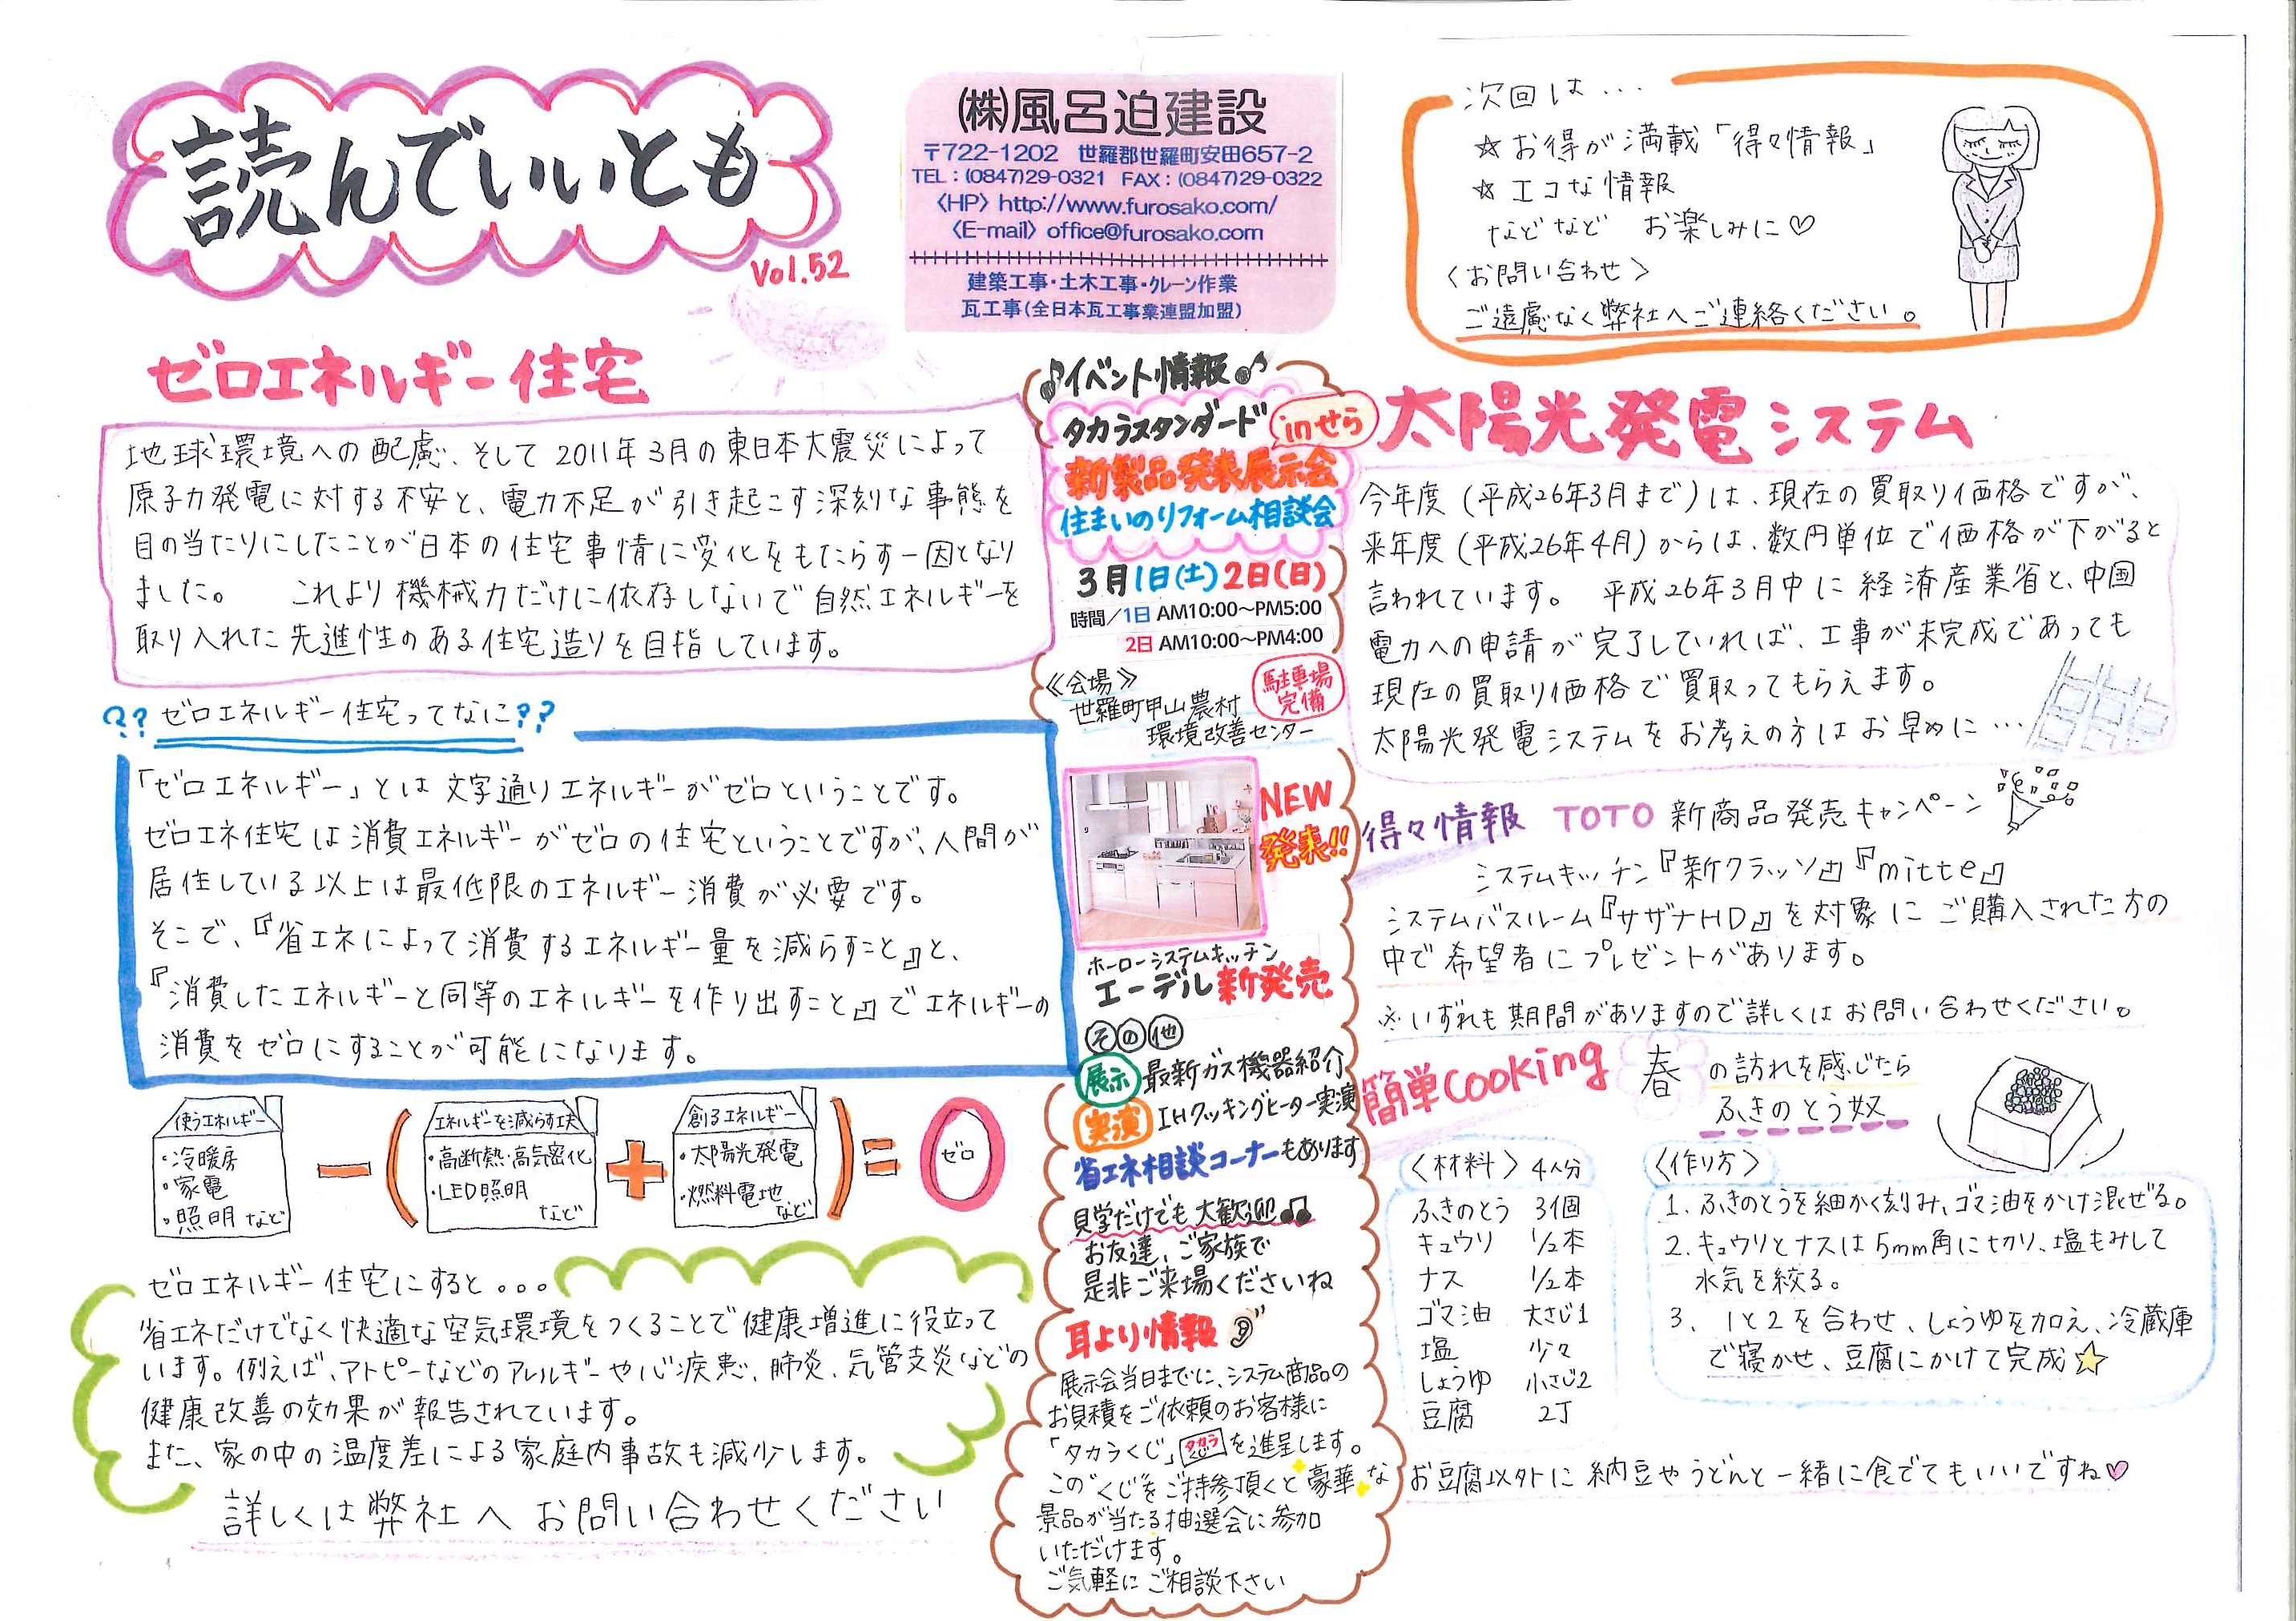 読んでいいとも
Vol.52
㈱風呂迫建設
〒722-1202 世羅郡世羅町安田657-2
TEL：(0847)29-0321 FAX：(0847)29-0322
〈HP〉http://www.furosako.com/
〈E-mail〉office@furosako.com
建築工事・土木工事・クレーン作業
瓦工事(全日本瓦工事業連盟加盟)
次回は...
☆お得が満載「得々情報」
☆エコな情報
などなど お楽しみに♡
〈お問い合わせ〉
ご遠慮なく弊社へご連絡ください。
ゼロエネルギー住宅
地球環境への配慮、そして2011年3月の東日本大震災によって
原子力発電に対する不安と、電力不足が引き起こす深刻な事態を
目の当たりにしたことが日本の住宅事情に変化をもたらす一因となり
ました。 これより機械力だけに依存しないで自然エネルギーを
取り入れた先進性のある住宅造りを目指しています。
??ゼロエネルギー住宅ってなに??
「ゼロエネルギー」とは文字通りエネルギーがゼロということです。
ゼロエネ住宅は消費エネルギーがゼロの住宅ということですが、人間が
居住している以上は最低限のエネルギー消費が必要です。
そこで、『省エネによって消費するエネルギー量を減らすこと』と、
『消費したエネルギーと同等のエネルギーを作り出すこと』でエネルギーの
消費をゼロにすることが可能になります。
使うエネルギー
・冷暖房
・家電
・照明 など
−
(
エネルギーを減らす工夫
・高断熱・高気密化
・LED照明
など
+
創るエネルギー
・太陽光発電
・燃料電池
など
)
=
ゼロ
ゼロエネルギー住宅にすると。。。
省エネだけでなく快適な空気環境をつくることで健康増進に役立って
います。例えば、アトピーなどのアレルギーや心疾患、肺炎、気管支炎などの
健康改善の効果が報告されています。
また、家の中の温度差による家庭内事故も減少します。
詳しくは弊社へお問い合わせください
♪イベント情報♪
タカラスタンダード
inせら
新製品発表展示会
住まいのリフォーム相談会
3月1日(土)2日(日)
時間／1日 AM10:00〜PM5:00
2日 AM10:00〜PM4:00
《会場》
駐車場
完備
世羅町甲山農村
環境改善センター
NEW
発表!!
ホーローシステムキッチン
エーデル新発売
その他
展示 最新ガス機器紹介
実演 IHクッキングヒーター実演
省エネ相談コーナーもあります
見学だけでも大歓迎♫
お友達、ご家族で
是非ご来場くださいね
耳より情報
展示会当日までに、システム商品の
お見積をご依頼のお客様に
「タカラくじ」タカラくじを進呈します。
この"くじ"をご持参頂くと豪華な
景品が当たる抽選会に参加
いただけます。
ご気軽にご相談下さい
太陽光発電システム
今年度(平成26年3月まで)は、現在の買取り価格ですが、
来年度(平成26年4月)からは、数円単位で価格が下がると
言われています。 平成26年3月中に経済産業省と、中国
電力への申請が完了していれば、工事が未完成であっても
現在の買取り価格で買取ってもらえます。
太陽光発電システムをお考えの方はお早めに…
得々情報 TOTO 新商品発売キャンペーン
システムキッチン『新クラッソ』『mitte』
システムバスルーム『サザナHD』を対象にご購入された方の
中で希望者にプレゼントがあります。
※いずれも期間がありますので詳しくはお問い合わせください。
簡単cooking
春の訪れを感じたら
ふきのとう奴
〈材料〉4人分
ふきのとう 3個
キュウリ 1/2本
ナス 1/2本
ゴマ油 大さじ1
塩 少々
しょうゆ 小さじ2
豆腐 2丁
〈作り方〉
1. ふきのとうを細かく刻み、ゴマ油をかけ混ぜる。
2. キュウリとナスは5mm角に切り、塩もみして
水気を絞る。
3. 1と2を合わせ、しょうゆを加え、冷蔵庫
で寝かせ、豆腐にかけて完成☆
お豆腐以外に納豆やうどんと一緒に食べてもいいですね♡